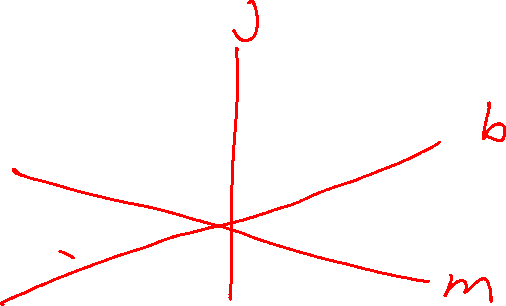 J
b
m